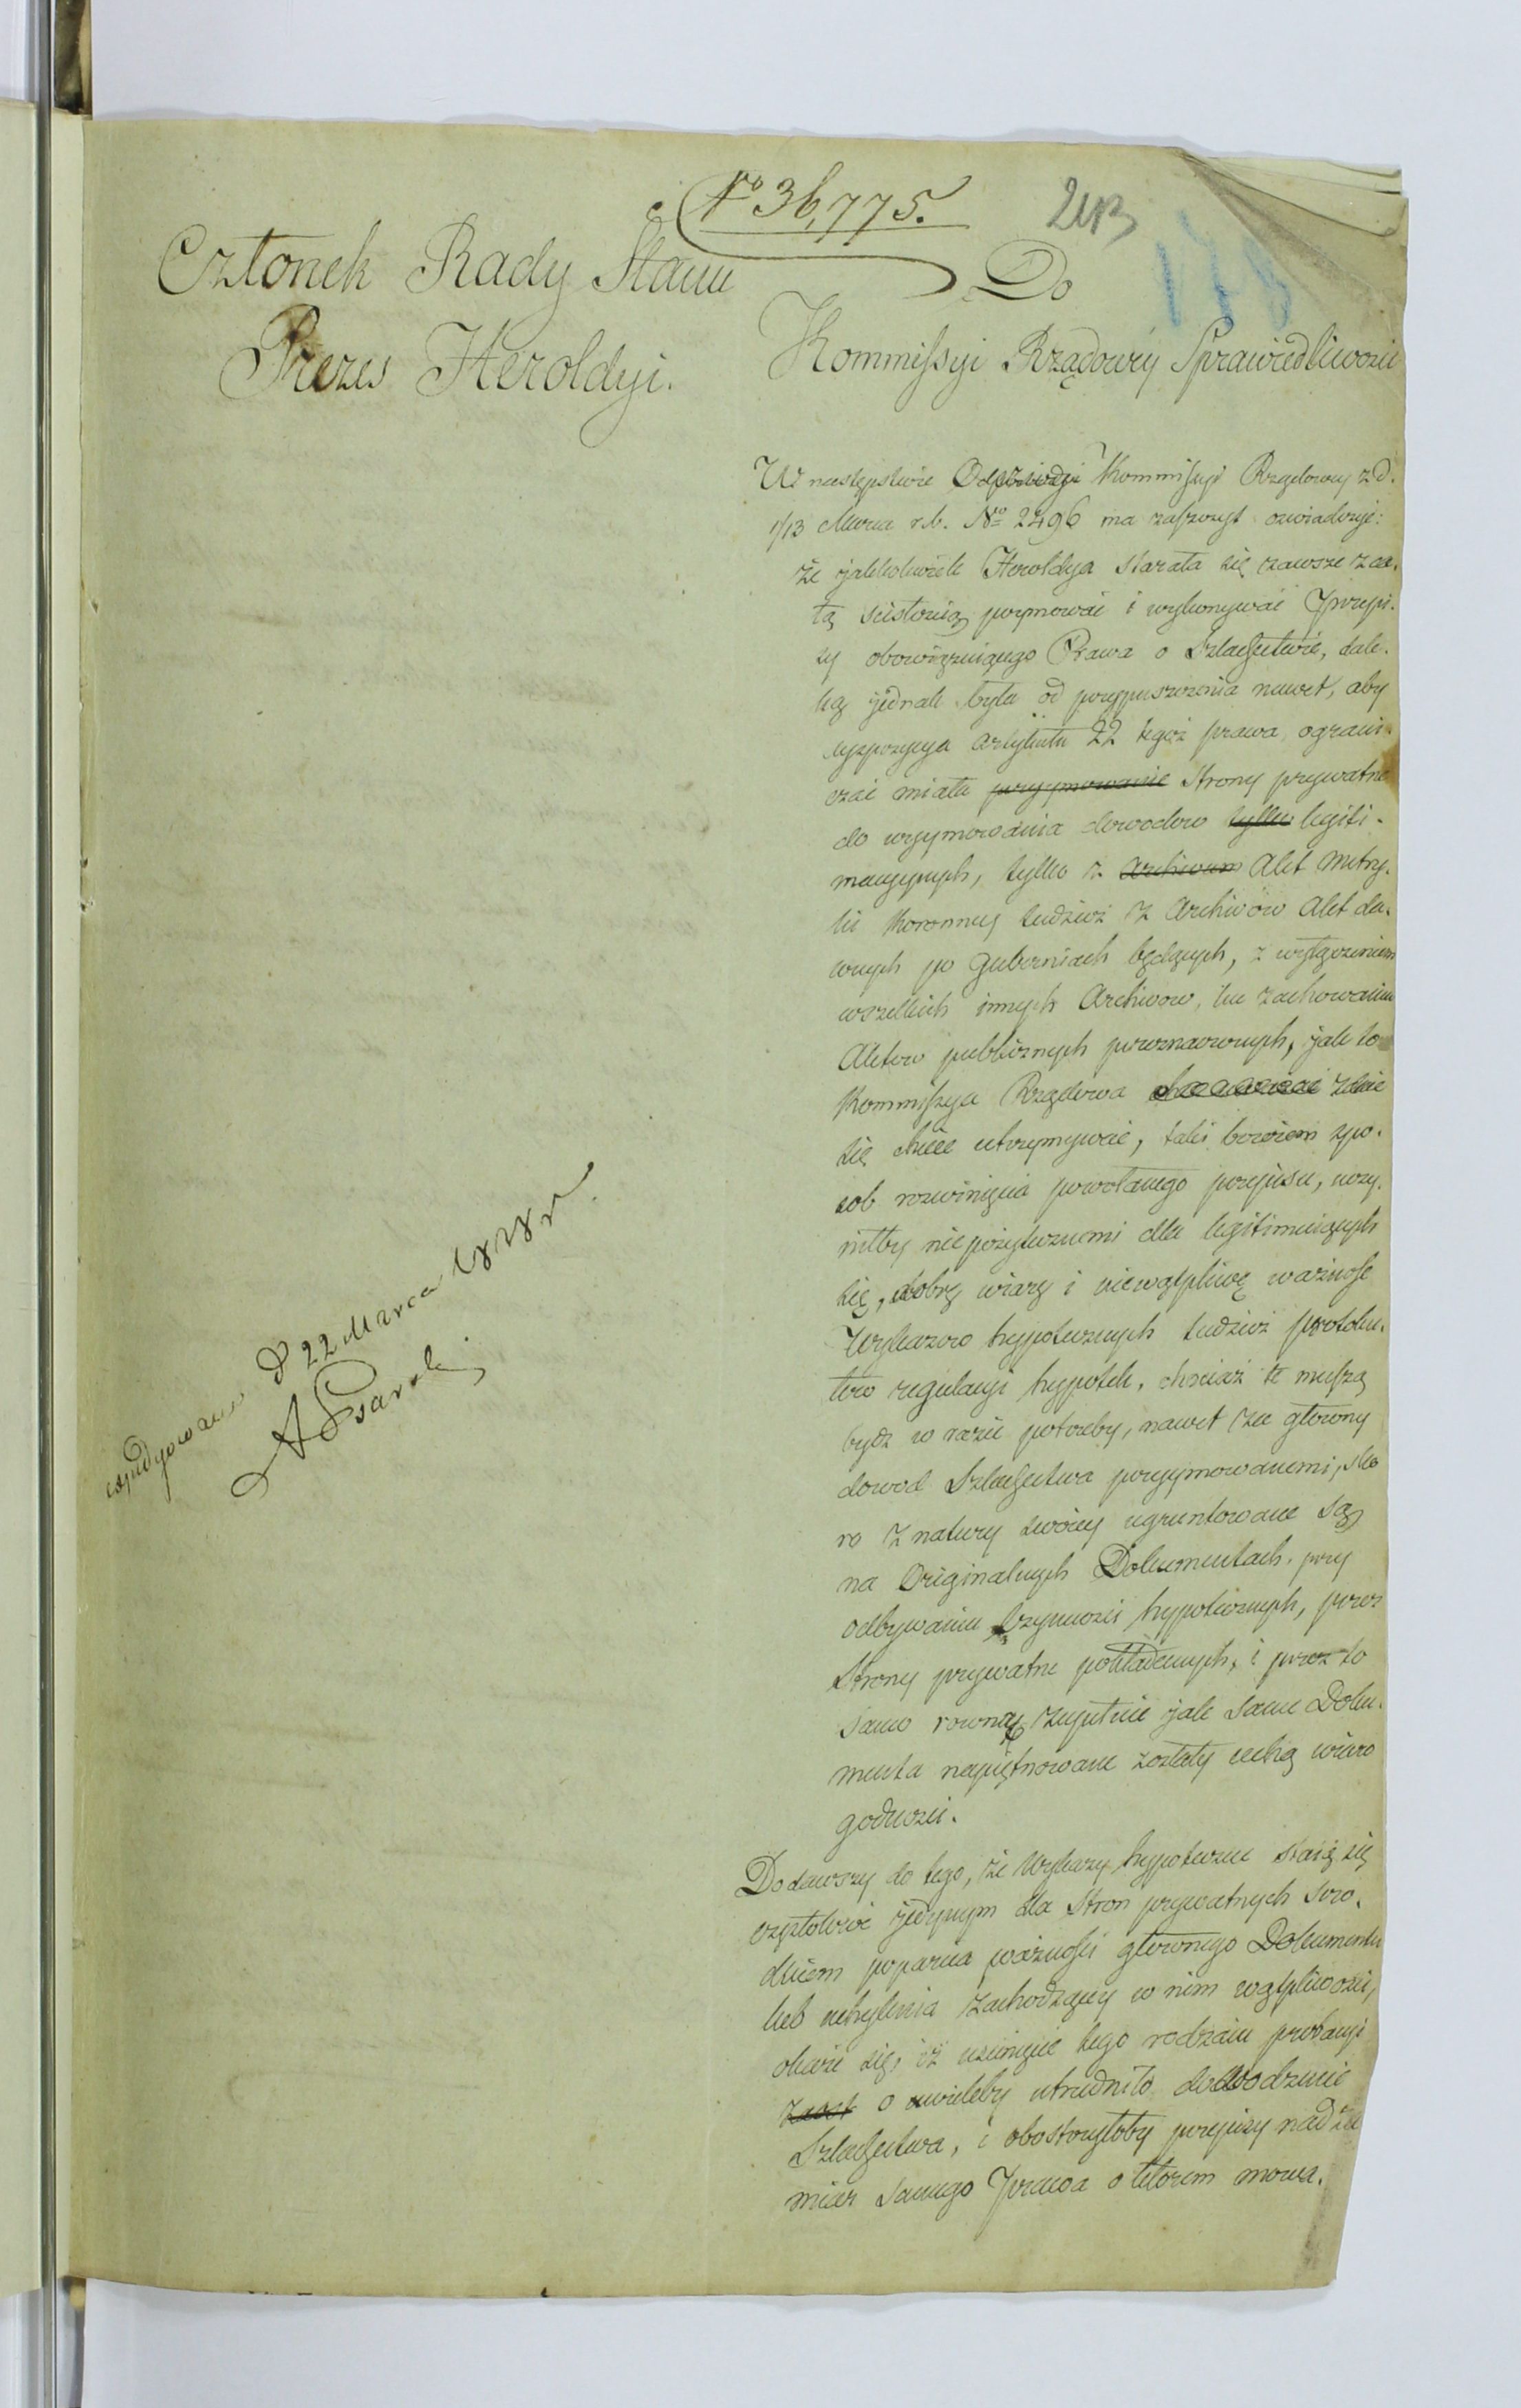 No 36,775.
243
178
Członek Rady Stanu
Prezes Heroldyi.
Do
Kommissyi Rządowéy Sprawiedliwości
W następstwie Odezwy Kommissyi Rządowey z d.
1/13 Marca r.b. No 2496 ma zaszczyt oświadczyć:
że jakkolwiek Heroldya starała się zawsze z ca-
łą ścisłością poymować i wykonywać przepi-
sy obowiązuiącego Prawa o Szlachectwie, dale-
ką jednak była od przypuszczenia nawet, aby
dyspozycya Artykułu 22 tegoż prawa, ograni-
czać miała przyymowanie Strony prywatne
do wyymowania dowodow tylko legiti-
macyynych, tylko z Archiwum Akt Metry-
ki Koronney tudzież z Archiwów Akt da-
wnych po Guberniach będących, z wyłączeniem
wszelkich innych Archiwow, ku zachowaniu
Aktow publicznych przeznaczonych, jak to
Kommissya Rządowa zdaie
się chcieć utrzymywać, taki bowiem spo-
sob rozwinięcia powołanego przepisu, uczy-
niłby niepożytecznemi dla legitimuiących
się, dobrą wiarę i niewątpliwą ważność
Wykazow hypotecznych tudzież protoku-
łow regulacyi hypotek, chociaż te muszą
bydź w razie potrzeby, nawet za głowny
dowod Szlachectwa przyymowanemi, sko
ro z natury swoiey ugruntowane są
na Originalnych Dokumentach, przy
odbywaniu czynności hypotecznych, przez
Strony prywatne pokładanych, i przez to
samo rowną zupełnie jak same Doku-
menta napiętnowane zostały cechą wiaro
godności.
Dodawszy do tego, że Wykazy hypoteczne staią się
częstokroć jedynym dla Stron prywatnych śro-
dkiem poparcia ważności głownego Dokumentu
lub uchylenia zachodzącey w nim wątpliwości,
okaże się, iż usunięcie tego rodzaiu probacyi
o wieleby utrudniło dowodzenie
Szlachectwa, i obostrzyłoby przepisy nad za
miar samego Prawa o ktorem mowa.
expedyowano d 22 Marca